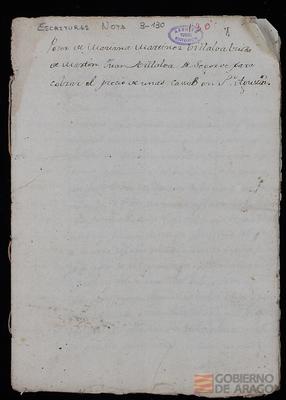 ESCRITURAS NOTA 3-130
Poder de Mariana Martinez Villalva Viuda
de Martin Juan Villalva de Segorve para
cobrar el precio de unas casas en Sn Agustin
GOBIERNO
DE ARAGON